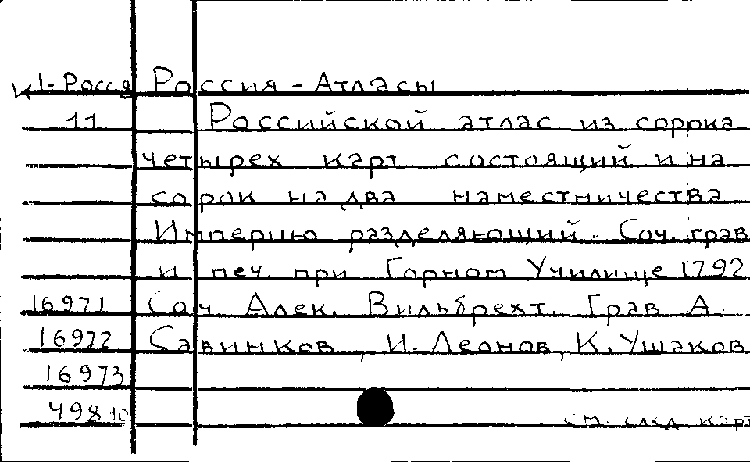 1-Росся Россия - Атласы
11 Российской атлас из сорока
четырех карт состоящий и на
сорок на два наместничества
Империю разделяющий. Соч. грав
и печ. при Горном Училище 1792
16971 Соч Алек. Вильбрехт. Грав А.
16972 Савинков, И. Леонов, К. Ушаков
16973
49810 см. след. карт